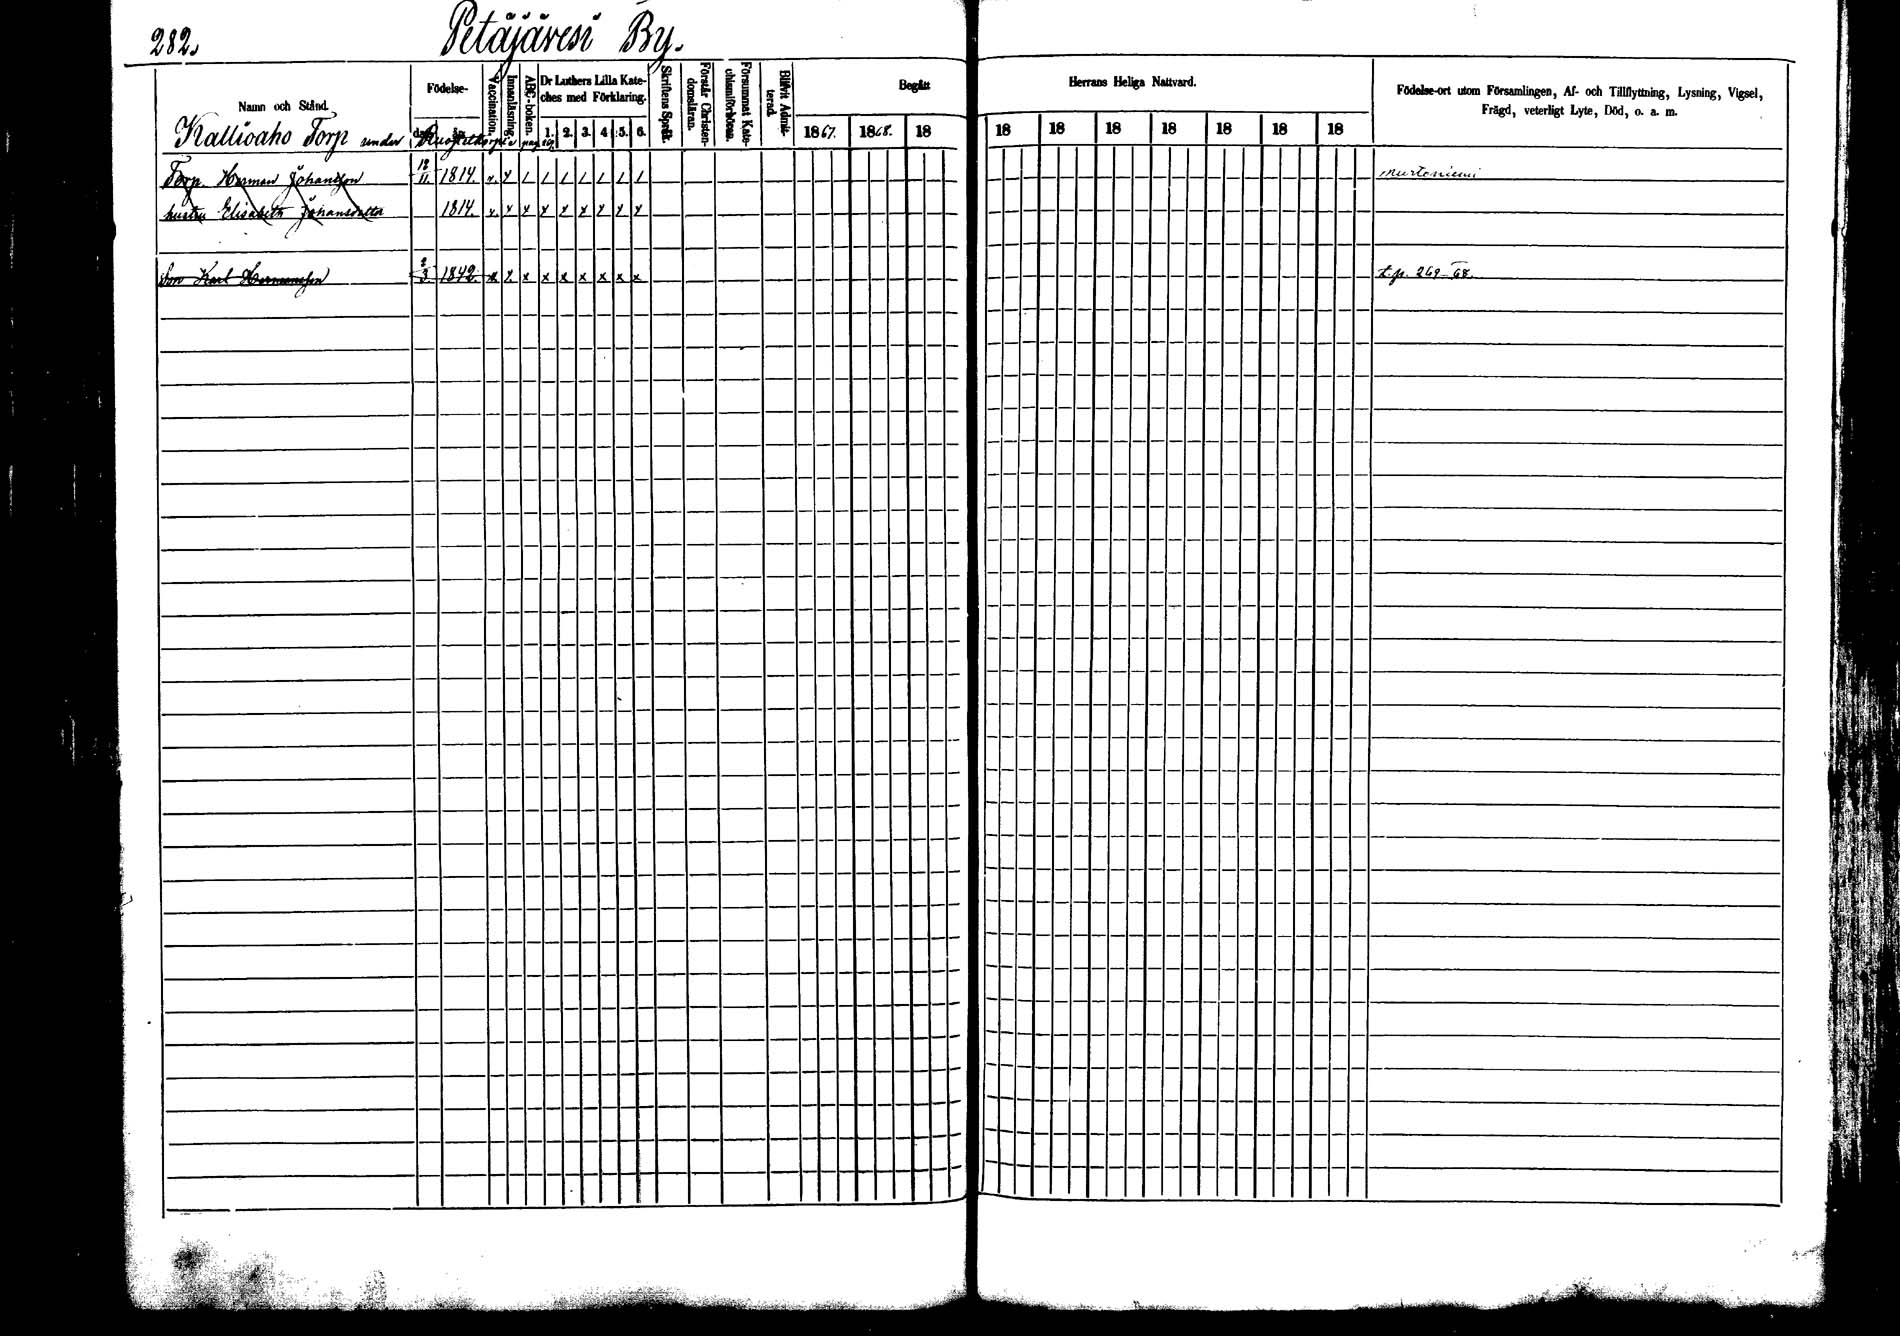 282.
Petäjävesi By.
Namn och Stånd.
Födelse-
dag. år.
Vaccination.
Innanläsning.
ABC-boken.
Dr Luthers Lilla Kate-
ches med Förklaring.
1. 2. 3. 4 5. 6.
Skriftens Språk.
Förstår Christen-
domsläran.
Försummat Kate-
chismiförhören.
Blifvit Admit-
terad.
Begått
1867. 1868. 18
Herrans Heliga Nattvard.
18 18 18 18 18 18 18
Födelse-ort utom Församlingen, Af- och Tillflyttning, Lysning, Vigsel,
Frägd, veterligt Lyte, Död, o. a. m.
Kallioaho Torp under
Torp. Herman Johansson 12/11. 1814. v. x / / / / / / /
Murtoniemi
hustru Elisabeth Johansdotter 1814. v. x x x x x x x x
Son Karl Hermansson 2/3. 1842. v. x x x x x x x x
t. p. 269-68.